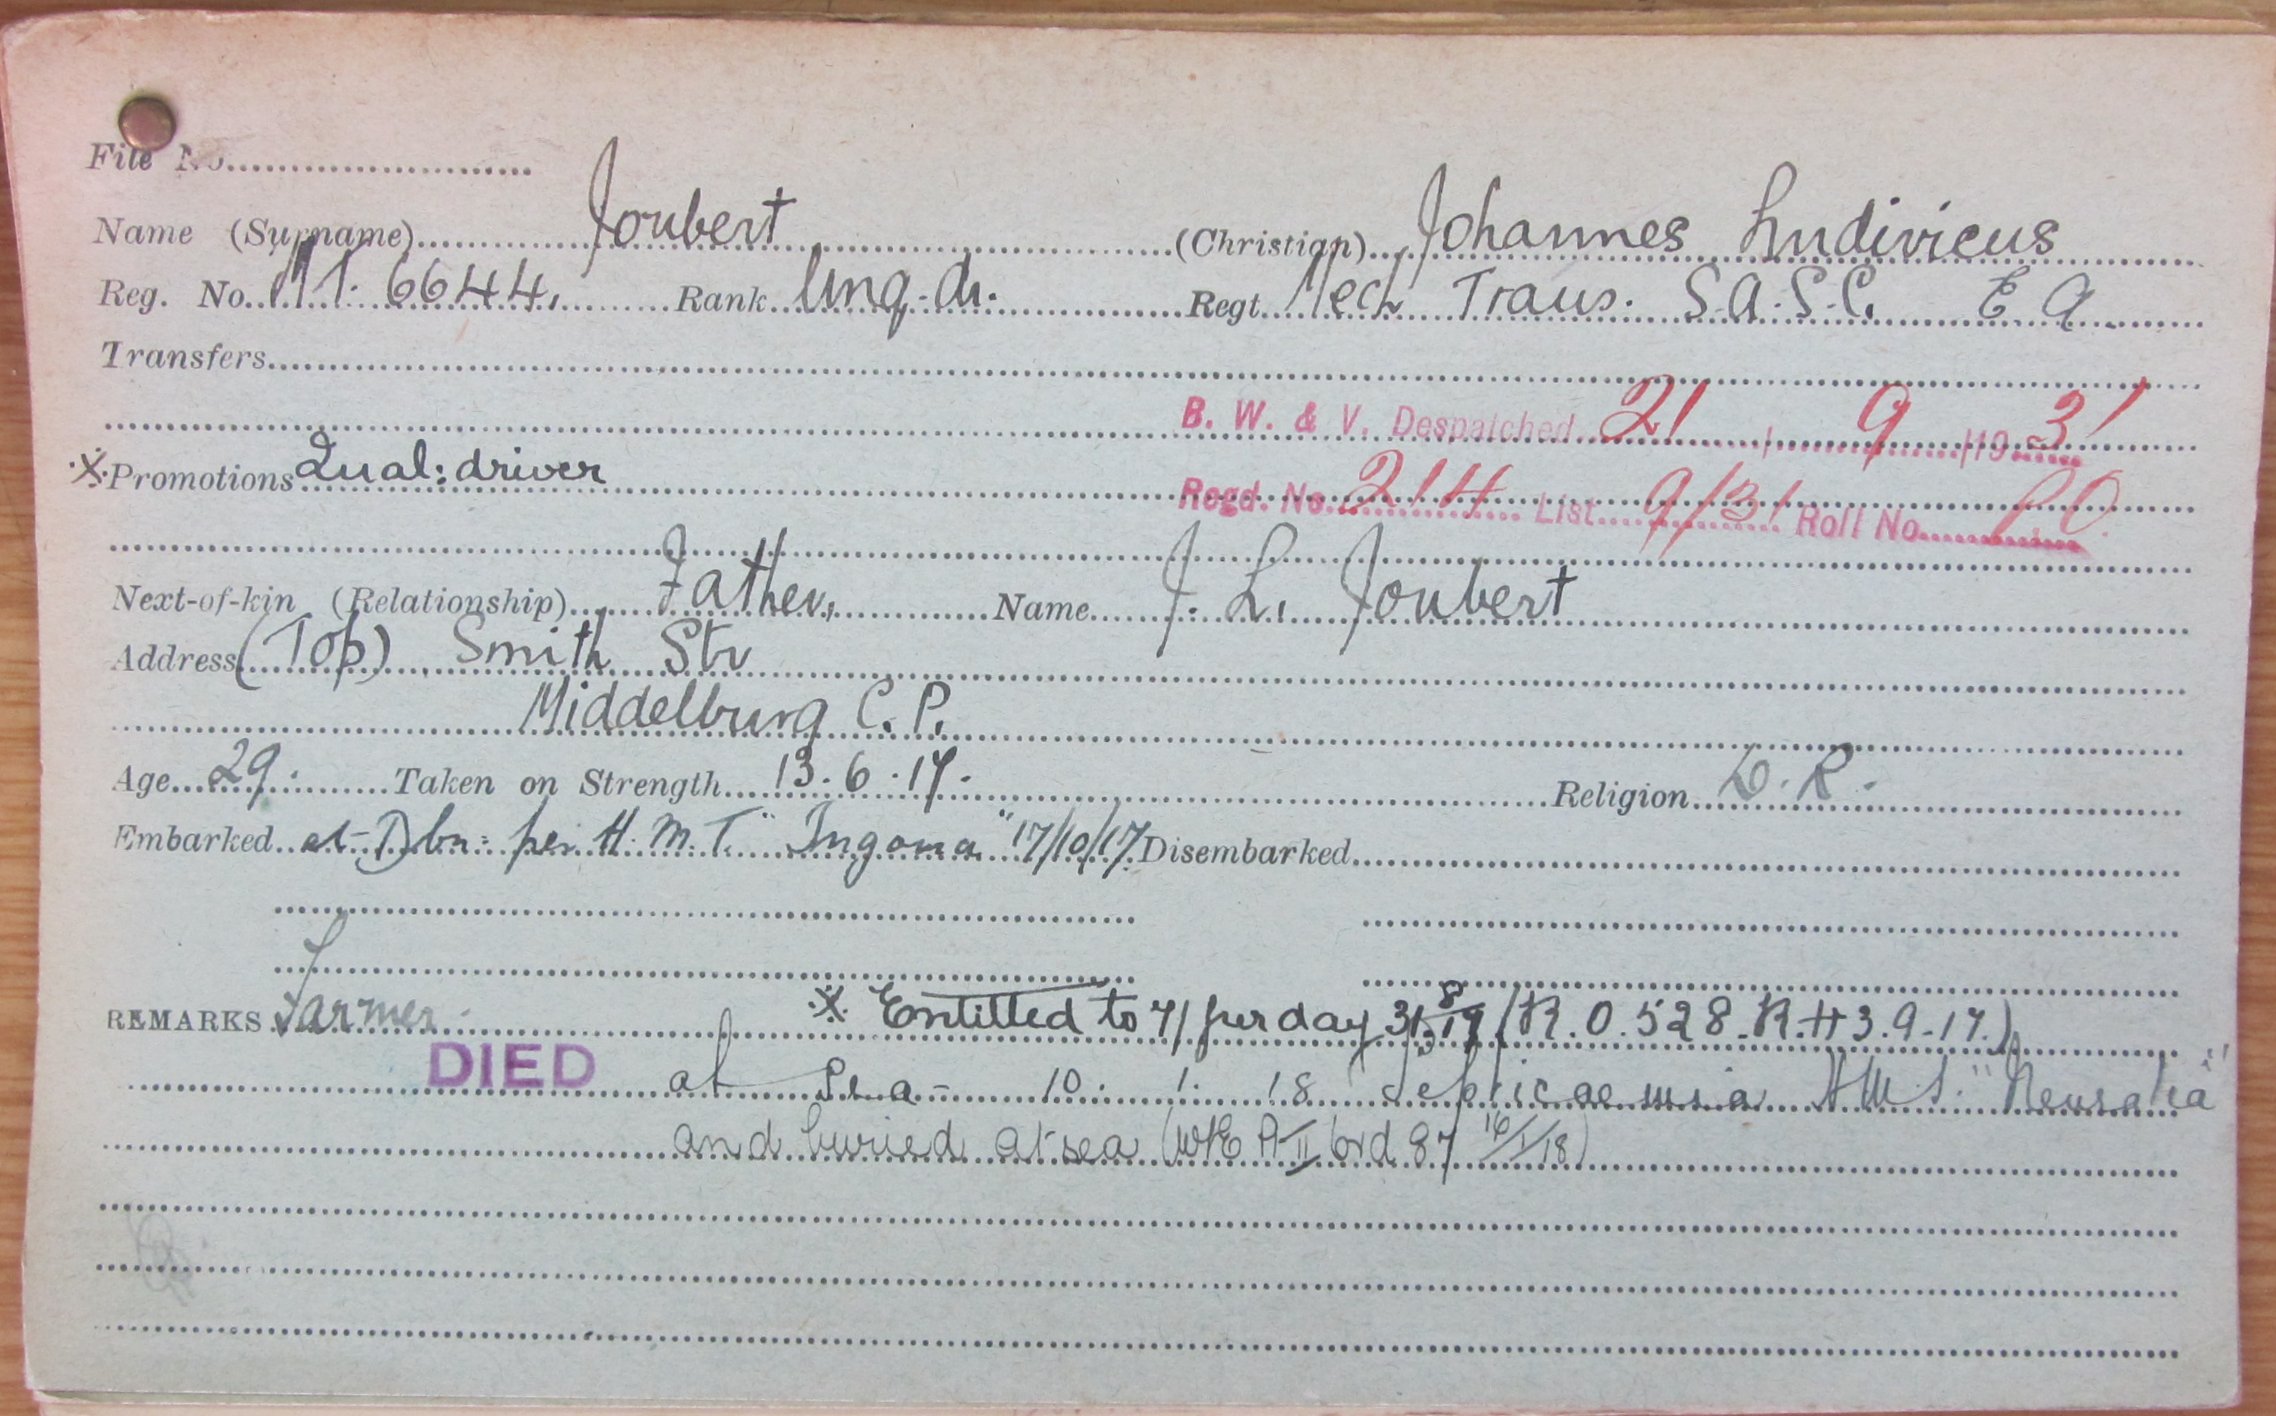 File No
Name (Surname) Joubert (Christian) Johannes Ludivicus
Reg. No. MT. 6644. Rank Unq. dr. Regt Mech Trans. S.A.S.C. E A
Transfers
B. W. & V. Despatched 21 / 9 /19 31
※ Promotions Qual: driver
Regd. No. 214 List 9/31 Roll No.
Next-of-kin (Relationship) Father. Name J. L. Joubert
Address (Top) Smith Str
Middelburg C. P.
Age 29. Taken on Strength 13. 6. 17. Religion D. R.
Embarked at Dbn: per H. M. T. "Ingoma" 17/10/17 Disembarked
REMARKS Farmer. ※ Entitled to 7/ per day 31/8/17 (R.O. 528. R.H 3.9.17.)
DIED at Sea - 10. 1. 18 Septicaemia H M S. "Neuralia"
and buried at sea (WR Pt II ord 87 16/1/18)